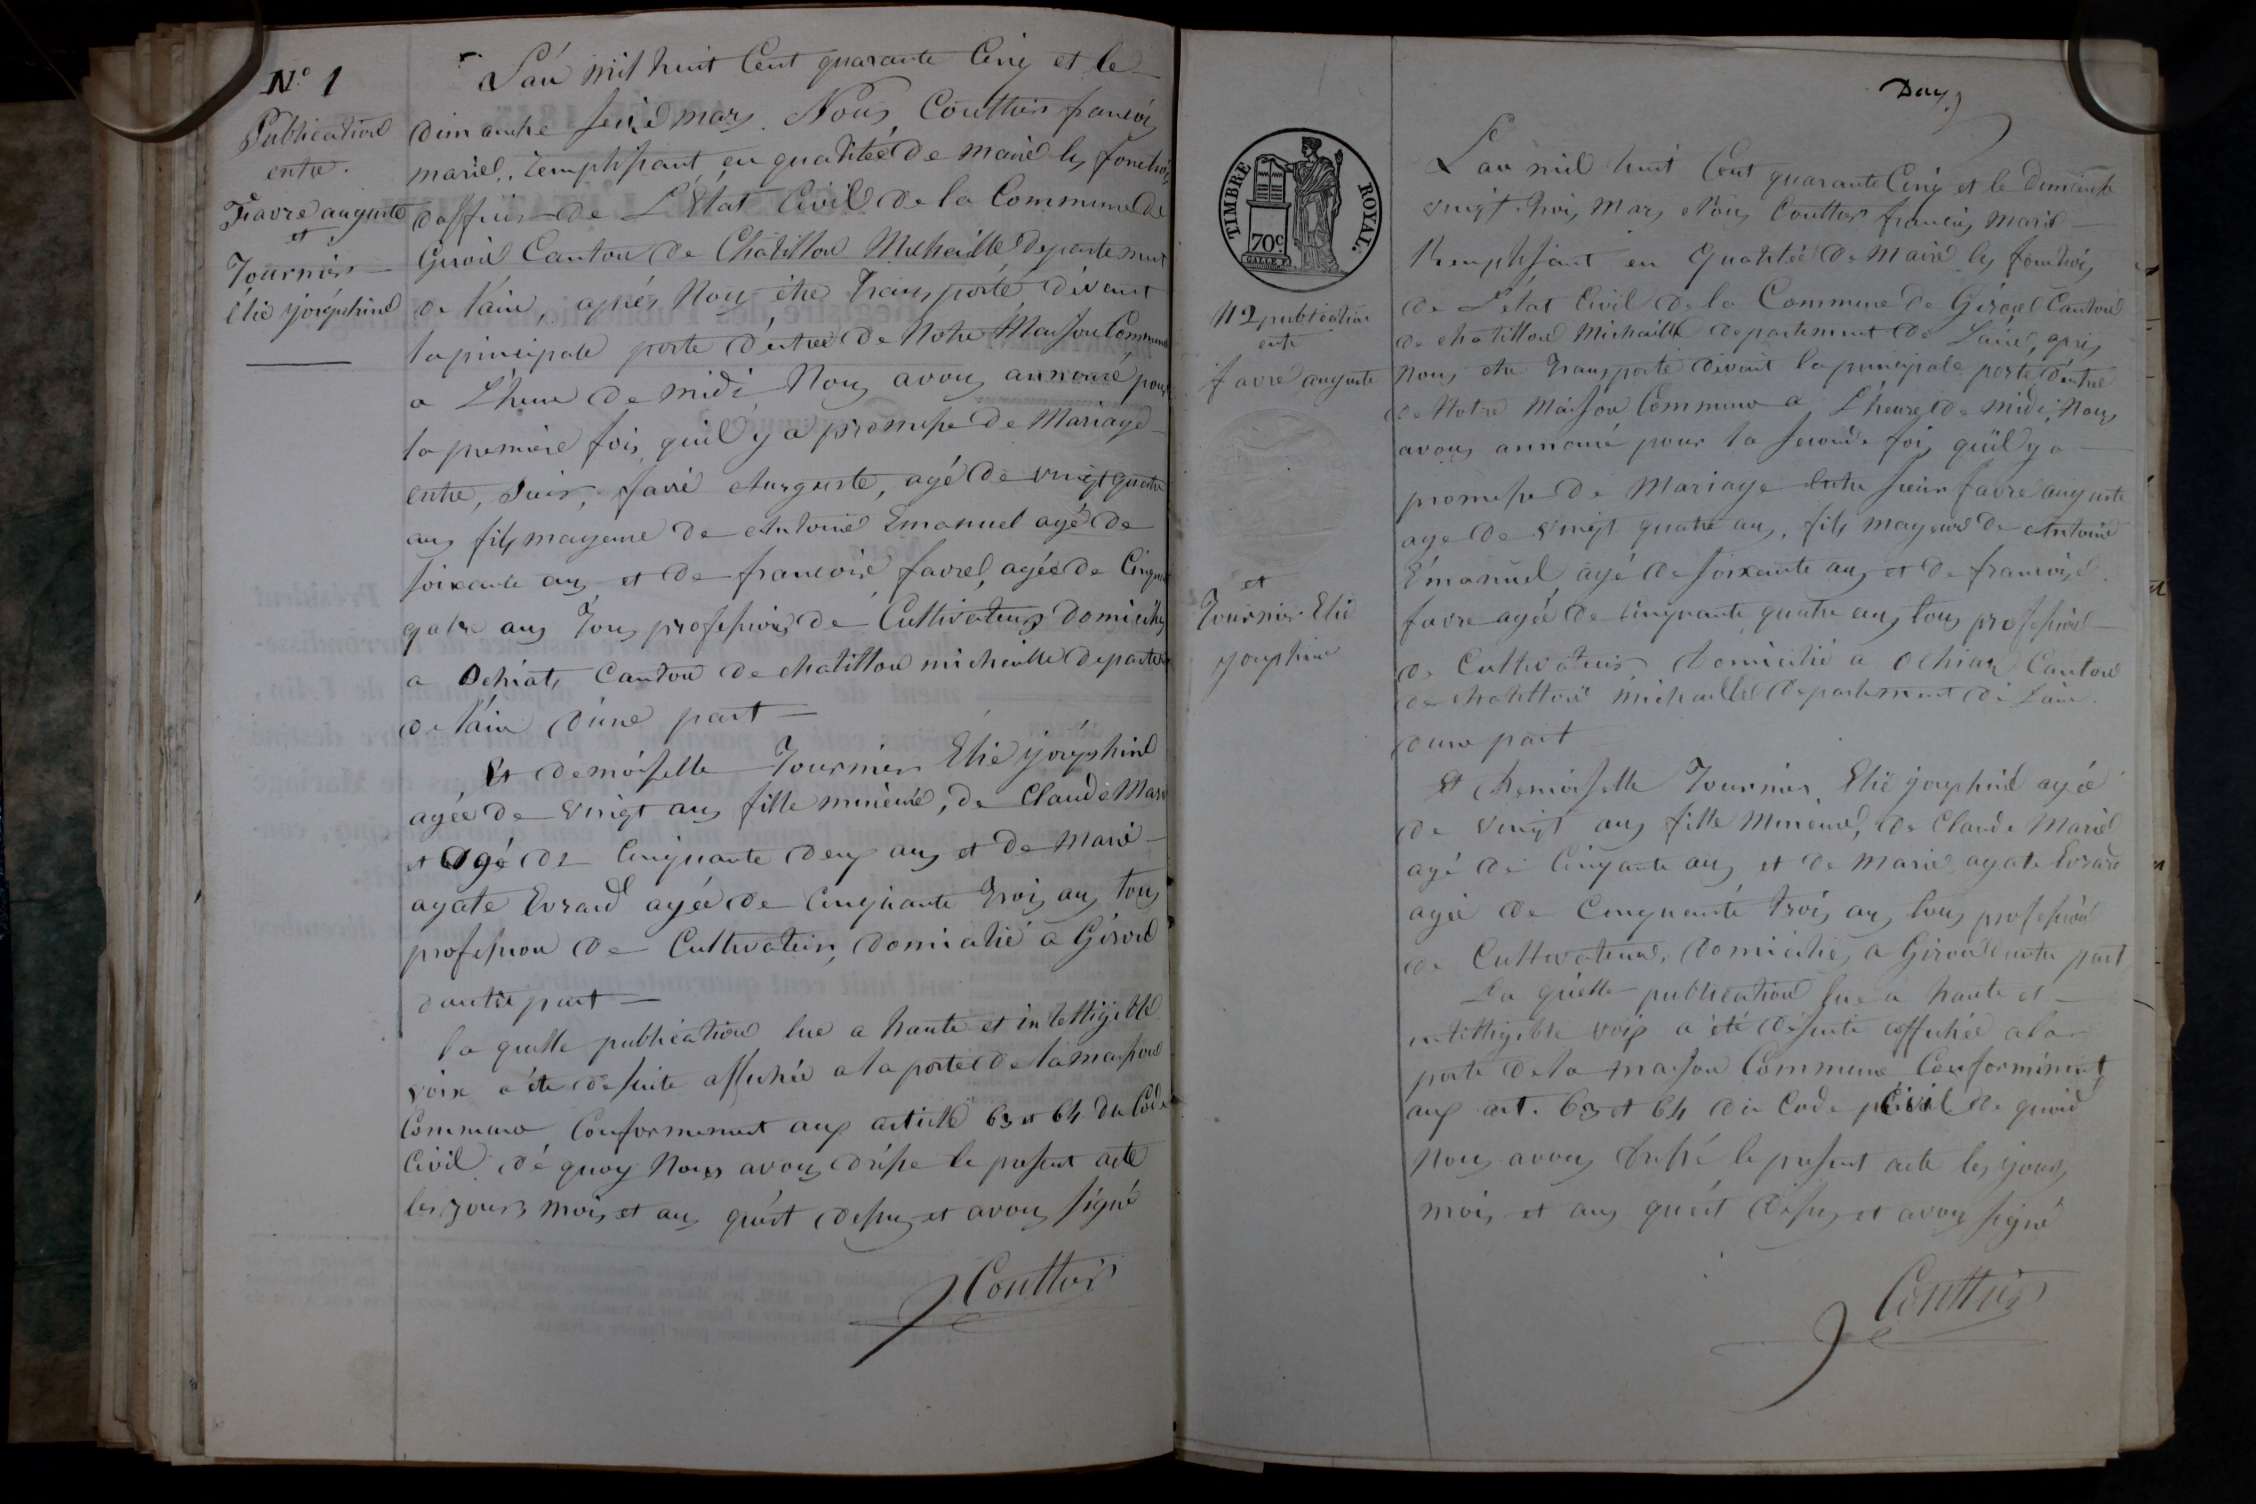 N° 1
Publication
entre.
Favre auguste
et
Tournier
Elie joséphine
L'an mil huit Cent quarante Cinq et le
dimanche seize mars. Nous Couttier francois
marie, remplissant en qualitée de maire les fonctions
dofficier de L'Etat Civil de la Commune de
Giron Canton de Chatillon Michaille departement
de l'ain, aprés Nous être Transporté dévant
la principale porte d'éntrée de Notre Maison Commune
a L'heure de midi Nous avons annoncé pour
la premiere fois, quil y a promesse de Mariage
entre, Sieur, favre Auguste, agé de vingt quatre
ans fils mageure de Antoine Emanuel agé de
soixante ans et de francoise favre, agée de Cinquante
quatre ans Tous profession de Cultivateurs domiciliés
a Ochiat, Canton de chatillon michaille departement
de l'ain d'une part
Et demoiselle Tournier Elie joséphine
agée de vingt ans fille mineure, de Claude Marie
et Agé de Cinquante deux ans et de Marie
agate Evrard agée de Cinquante trois ans tous
profession de Cultivateur, domicilié a Giron
dautre part
la quelle publication lue a haute et intelligible
voix a été de suite affichée a la porte de la maison
Commune Conformement aux article 63 et 64 du Code
Civil dé quoy Nous avons drésse le present acte
les jours mois et ans quést désus et avons signé
Couttier
Deux
TIMBRE ROYAL.
70c
GALLE F.
N 2 publication
entre
favre auguste
et
Tournier Elie
josephine
Le
L'an mil huit Cent quarante Cinq et le dimanche
vingt trois Mars Nous Couttier francois Marie
Remplissant en qualitée de Maire les fonctions
de L'état Civil de la Commune de Giron Canton
de chatillon Michaille departement de L'ain, aprés
Nous etre Transporté dévant la principale porte d'entrée
de Notre Maison Commune a L'heure de midi, Nous
avons annoncé pour la seconde fois quil y a
promesse de Mariage entre sieur favre auguste
age de vingt quatre ans, fils mageure de Antoine
Emanuel agé de soixante ans et de francoise
favre agée de cinquante quatre ans tous profession
de Cultivateurs domicilié a Ochiat Canton
de chatillon michaille departement de L'ain
dune part
Et Demoiselle Tournier Elie josephine agée
de vingt ans fille Mineure, de Claude Marie
agé de Cinquante ans et de Marie agate Evrard
agée de Cinquante trois ans tous profession
de Cultivateurs, domiciliés a Giron dautre part
La quelle publication lue a haute et
intelligible voix a été de suite affichée a la
porte de la maison Commune Conformément
aux art. 63 et 64 du Code Civil de quoi
Nous avons dréssé le present acte les jours
mois et ans quést désus et avons signé
Couttier